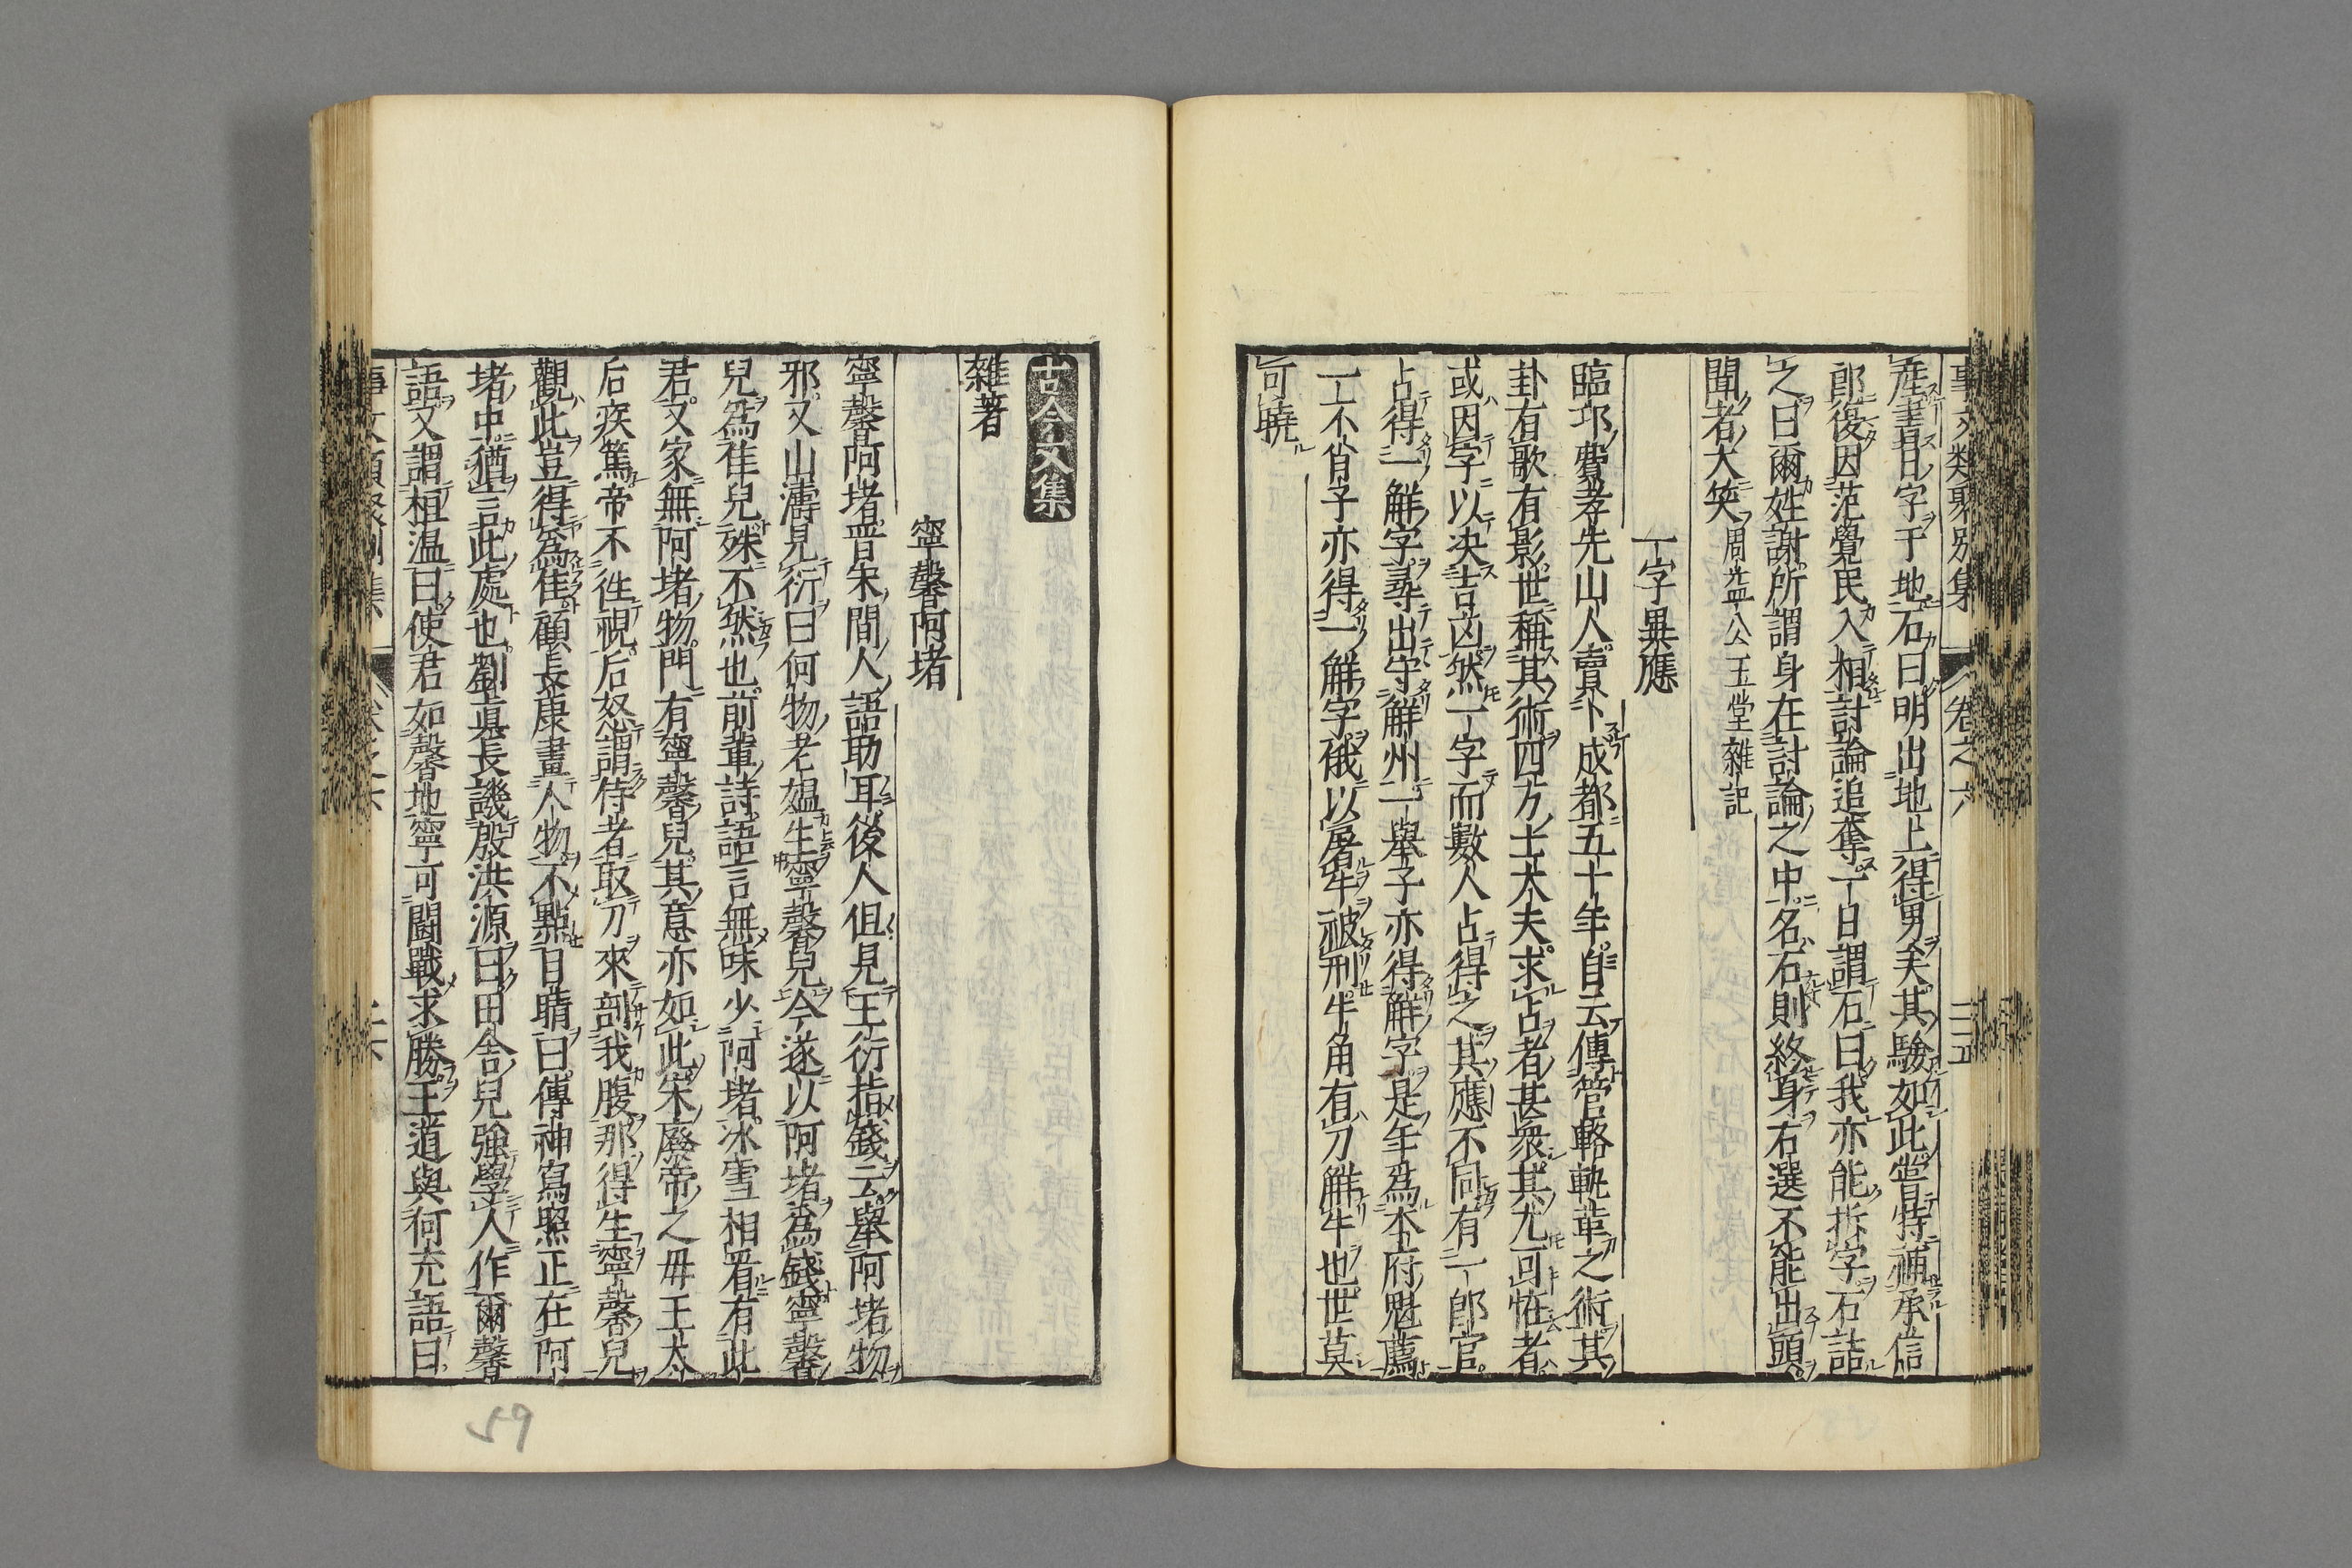 事文類聚別集 卷之六 二十五
産書日字于地石曰明出地上得男矣其驗如此嘗特補承信
郎後因范覺民入相討論追奪一日謂石曰我亦能拆字石詰
之曰爾姓謝所謂身在討論之中名石則終身右選不能出頭
聞者大笑周益公玉堂雜記
一字異應
臨邛費孝先山人賣卜成都五十年自云傳管輅軌革之術其
卦有歌有影世稱其術四方士大夫求占者甚衆其尤可怪者
或因字以决吉凶然一字而數人占得之其應不同有一郎官
占得一解字尋出守解州一舉子亦得解字是年爲本府魁薦
一不肖子亦得一解字俄以屠牛被刑牛角有刀解牛也世莫
可曉
古今文集
雜著
寧馨阿堵
寧馨阿堵晋宋間人語助耳後人但見王衍指錢云舉阿堵物
邪又山濤見衍曰何物老媼生寧馨兒今遂以阿堵爲錢寧馨
兒爲佳兒殊不然也前輩詩語言無味少阿堵冰雪相看有此
君又家無阿堵物門有寧馨兒其意亦如此宋廢帝之毋王太
后疾篤帝不往視后怒謂侍者取刀來剖我腹那得生寧馨兒
觀此豈得爲佳顧長康畫人物不點目睛曰傳神寫照正在阿
堵中猶言此處也劉眞長譏殷洪源曰田舍兒強學人作爾馨
語又謂桓温曰使君如馨地寧可鬪戰求勝王道與何充語曰
59